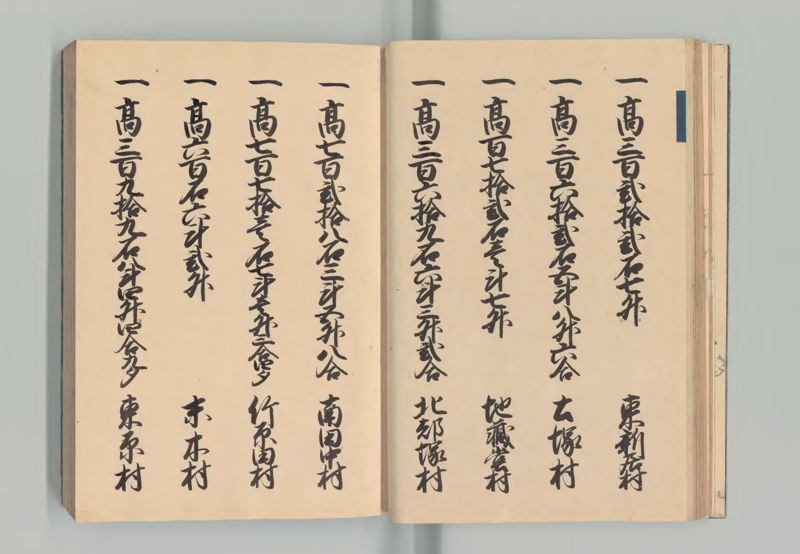 一高三百弐拾弐石七升 東新庄村
一高三百六拾弐石五斗八升六合 大塚村
一高百七拾弐石壱斗七升 地蔵堂村
一高三百六拾九石六斗三升弐合 北郡塚村
一高七百弐拾八石三斗五升八合 南田中村
一高七百七拾壱石七斗壱升三合四夕 竹原田村
一高六百石六斗弐升 末木村
一高三百九拾九石八斗四升四合九夕 東原村